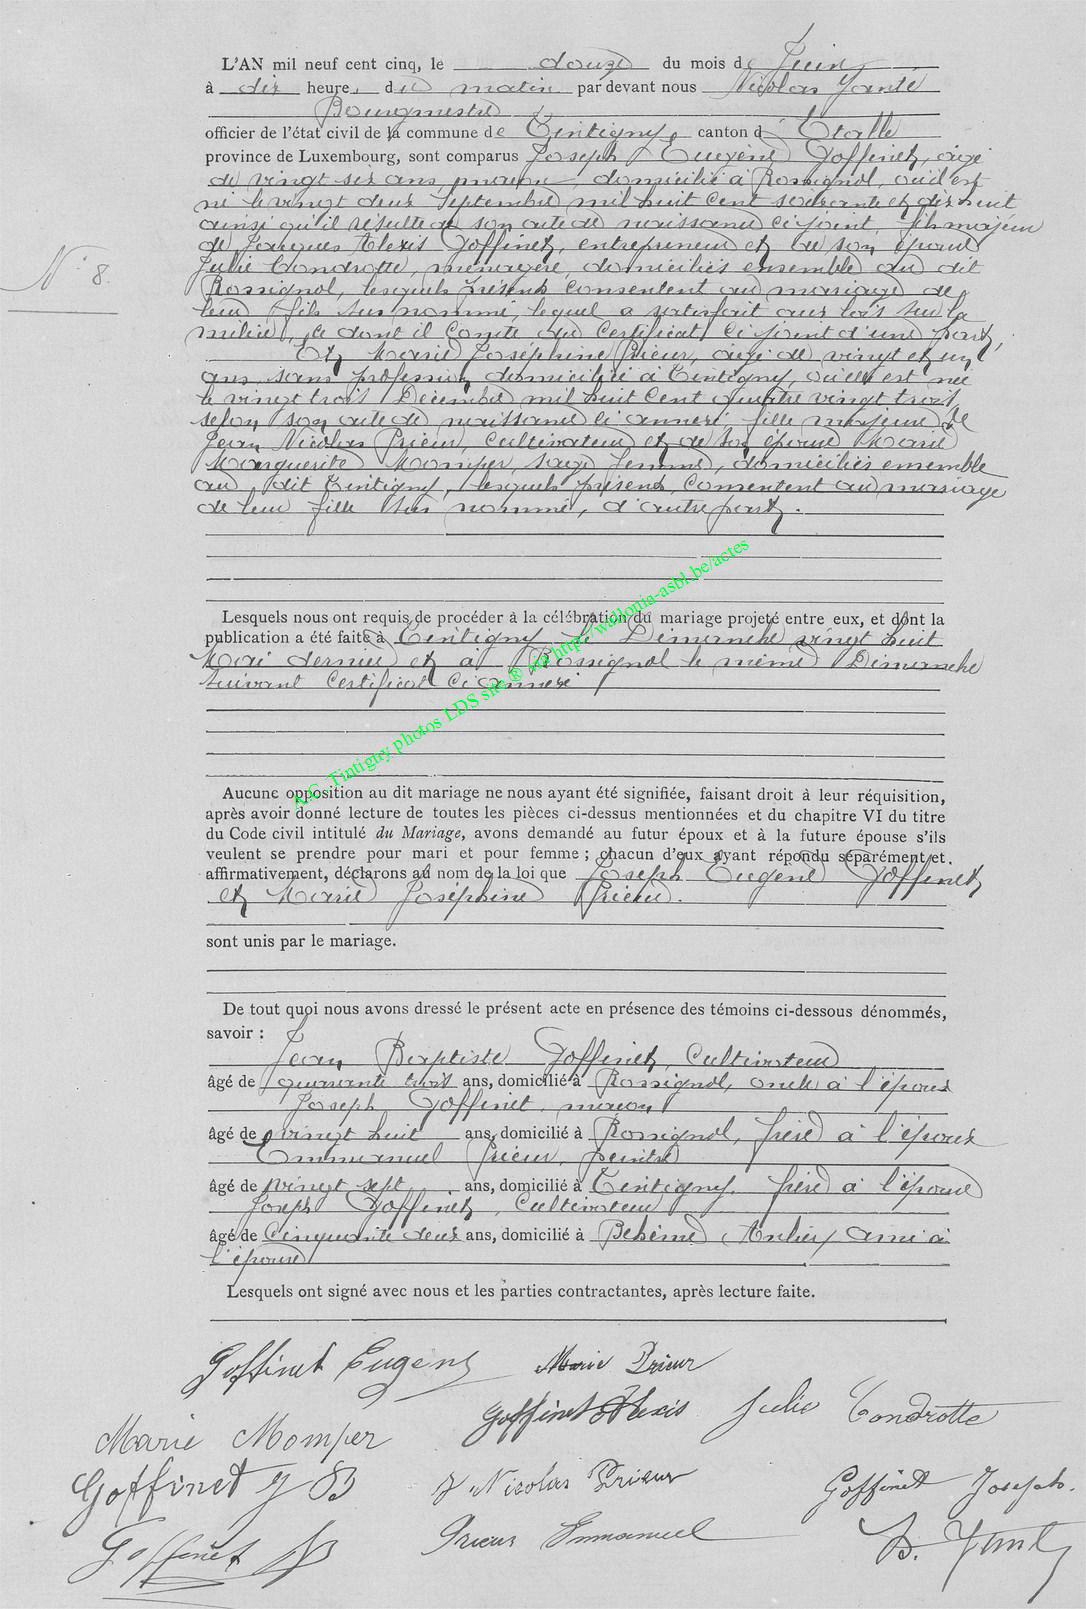 L'AN mil neuf cent cinq, le douze du mois de Juin
à dix heures du matin par devant nous Nicolas Yante
Bourgmestre
officier de l'état civil de la commune de Tintigny, canton d'Etalle
province de Luxembourg, sont comparus Joseph Eugène Goffinet, âgé
de vingt six ans, maçon, domicilié à Rossignol, où il est
né le vingt deux Septembre mil huit cent soixante et dix huit
ainsi qu'il résulte de son acte de naissance ci joint, fils majeur
de Jacques Alexis Goffinet, entrepreneur et de son épouse
Julie Condrotte, ménagère, domiciliés ensemble au dit
N° 8.
Rossignol, lesquels présents consentent au mariage de
leur fils sus nommé, lequel a satisfait aux lois sur la
milice, ce dont il conste du certificat ci joint d'une part,
Et Marie Joséphine Prieur, âgée de vingt et un
ans, sans profession domiciliée à Tintigny, où elle est née
le vingt trois Décembre mil huit cent quatre vingt trois,
selon son acte de naissance ci annexé, fille majeure de
Jean Nicolas Prieur, cultivateur et de son épouse Marie
Marguerite Momper, sage femme, domiciliés ensemble
au dit Tintigny, lesquels présents consentent au mariage
de leur fille sus nommée, d'autre part.
Lesquels nous ont requis de procéder à la célébration du mariage projeté entre eux, et dont la
publication a été faite à Tintigny le Dimanche vingt huit
Mai dernier et à Rossignol le même Dimanche
suivant certificat ci annexé
A.C. Tintigny photos LDS site ® via http://wallonia-asbl.be/actes
Aucune opposition au dit mariage ne nous ayant été signifiée, faisant droit à leur réquisition,
après avoir donné lecture de toutes les pièces ci-dessus mentionnées et du chapitre VI du titre
du Code civil intitulé du Mariage, avons demandé au futur époux et à la future épouse s'ils
veulent se prendre pour mari et pour femme ; chacun d'eux ayant répondu séparément et
affirmativement, déclarons au nom de la loi que Joseph Eugène Goffinet
et Marie Joséphine Prieur.
sont unis par le mariage.
De tout quoi nous avons dressé le présent acte en présence des témoins ci-dessous dénommés,
savoir :
Jean Baptiste Goffinet, cultivateur
âgé de quarante trois ans, domicilié à Rossignol, oncle à l'époux
Joseph Goffinet, maçon
âgé de vingt huit ans, domicilié à Rossignol, frère à l'époux
Emmanuel Prieur, peintre
âgé de vingt sept ans, domicilié à Tintigny, frère à l'épouse
Joseph Goffinet, cultivateur
âgé de cinquante deux ans, domicilié à Behême, Anlier, ami à
l'épouse
Lesquels ont signé avec nous et les parties contractantes, après lecture faite.
Goffinet Eugène Marie Prieur
Goffinet Alexis Julie Condrotte
Marie Momper
Goffinet J B J Nicolas Prieur Goffinet Joseph.
Goffinet Prieur Emmanuel N. Yante